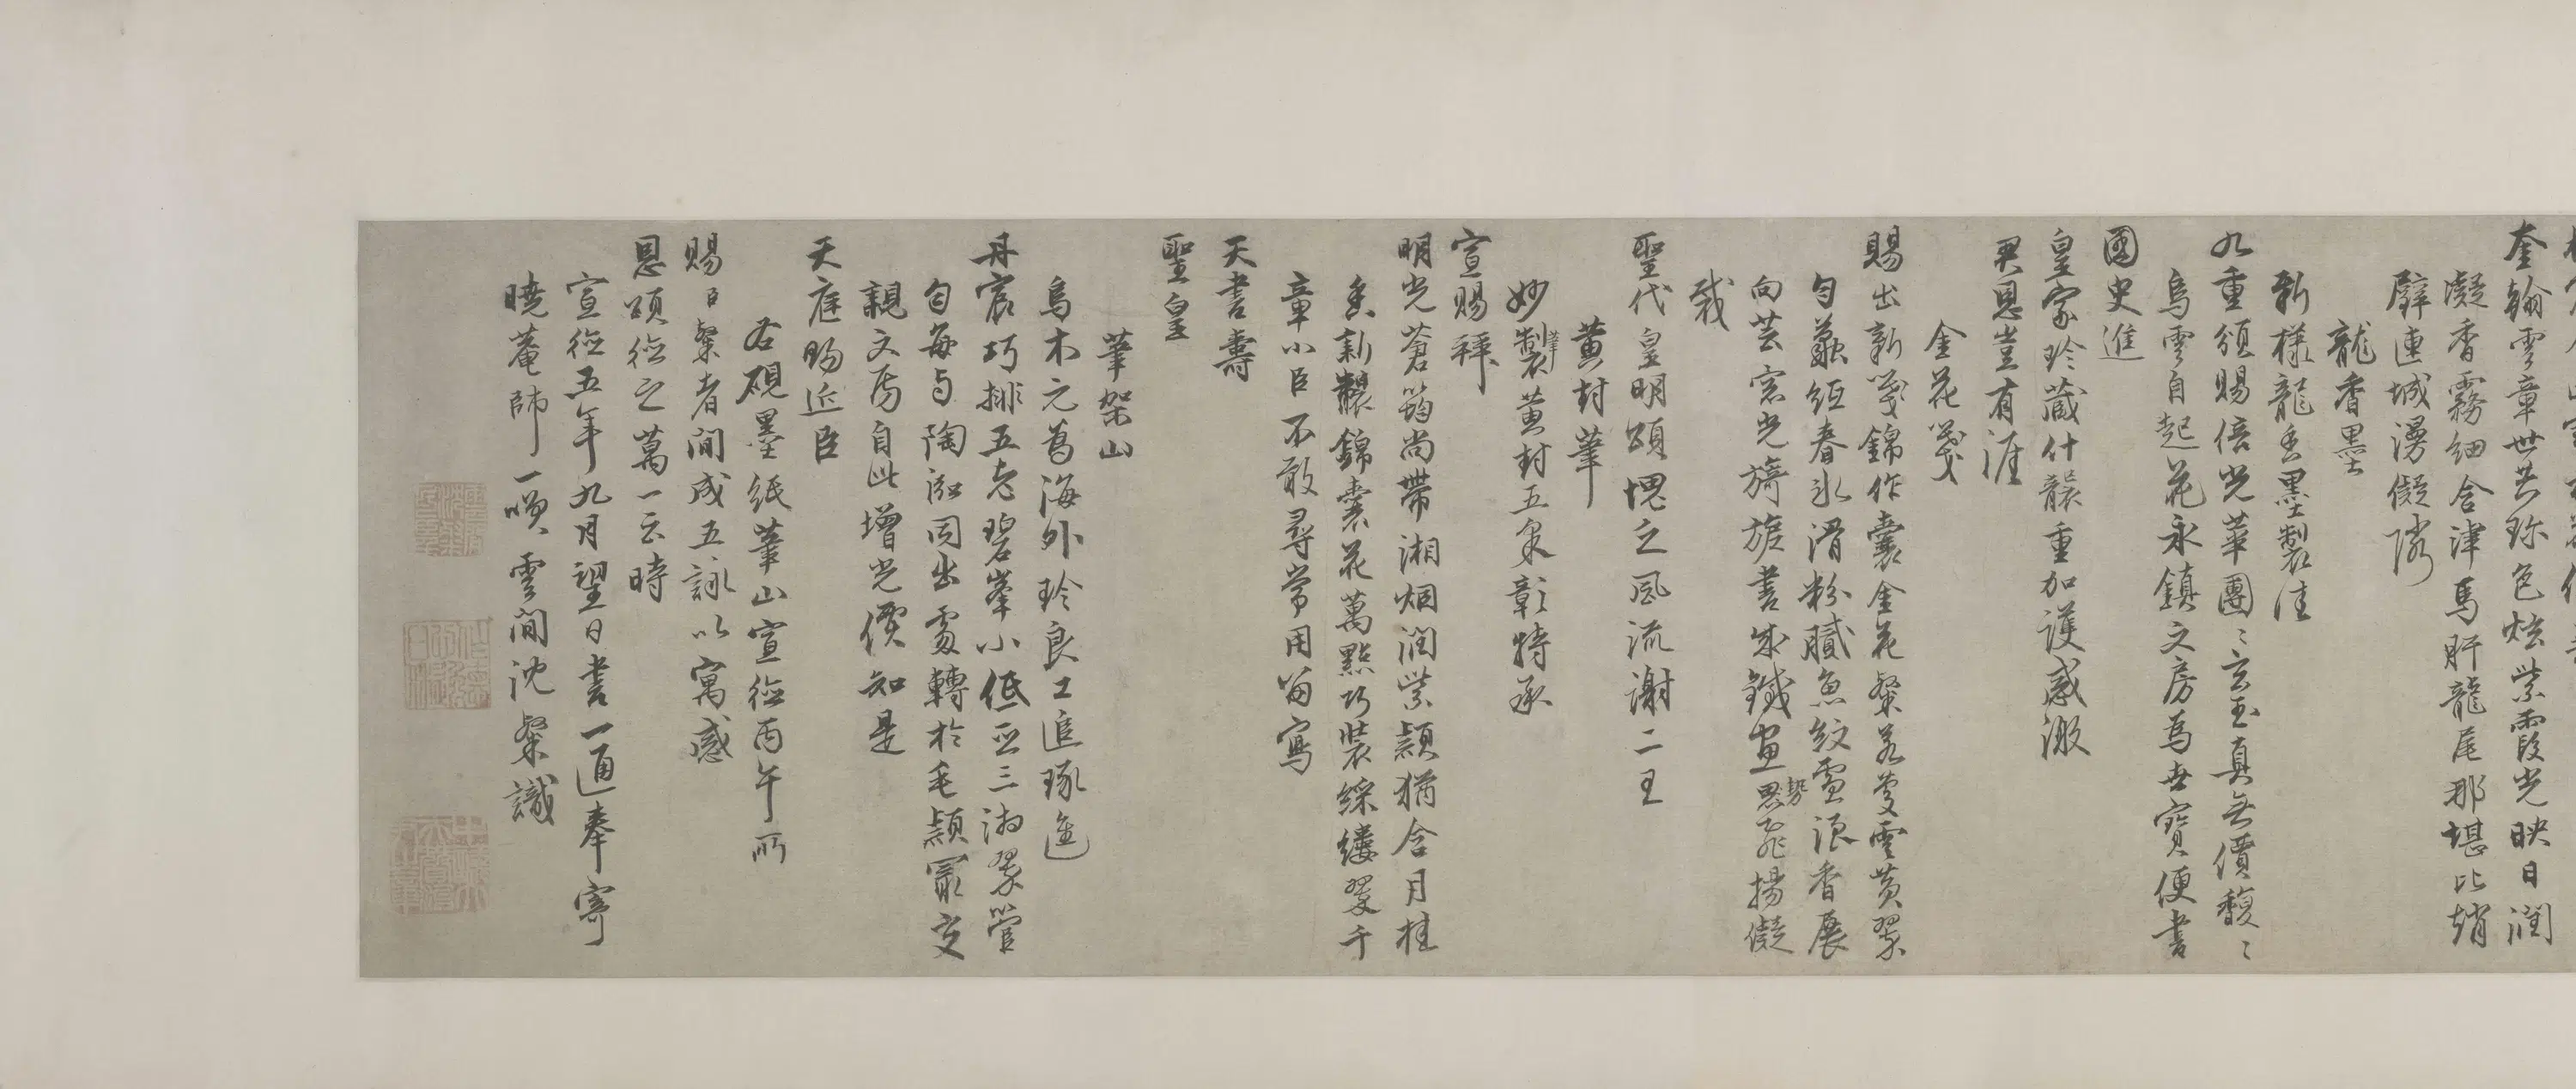 奎翰雲章世共珍色炫紫霞光映日潤
凝香霧細含津馬肝龍尾那堪比趙
璧連城漫儗隣
龍香墨
新樣龍香墨製佳
九重頒賜倍光華團〻玄玉真無價馥〻
烏雲自起花永鎮文房為世寶便書
國史進
皇家珍藏什襲重加護感激
天恩豈有涯
金花箋
賜出新箋錦作囊金花粲若蔓雲黃翠
勻蠶紙春冰滑粉膩魚紋雪浪香展
向芸窓光旖旎書成鐵畫勢飛揚儗
哉
聖代皇明頌愧乏風流謝二王
黃封筆
妙製筆黃封五采彰特承
宣賜拜
明光蒼筠尚帶湘烟潤紫穎猶含月桂
香新襲錦囊花萬點巧裝綵縷翠千
章小臣不敢尋常用留寫
天書壽
聖皇
筆架山
烏木元為海外珍良工追琢進
丹宸巧排五老碧峯小低亞三湘翠管
勻每與陶泓同出處轉於毛穎最交
親文房自此增光價知是
天庭賜近臣
右硯墨紙筆山宣德丙午所
賜臣粲者間成五詠以寓感
恩頌德之萬一云時
宣德五年九月望日書一通奉寄
曉菴師一噗雲間沈粲識